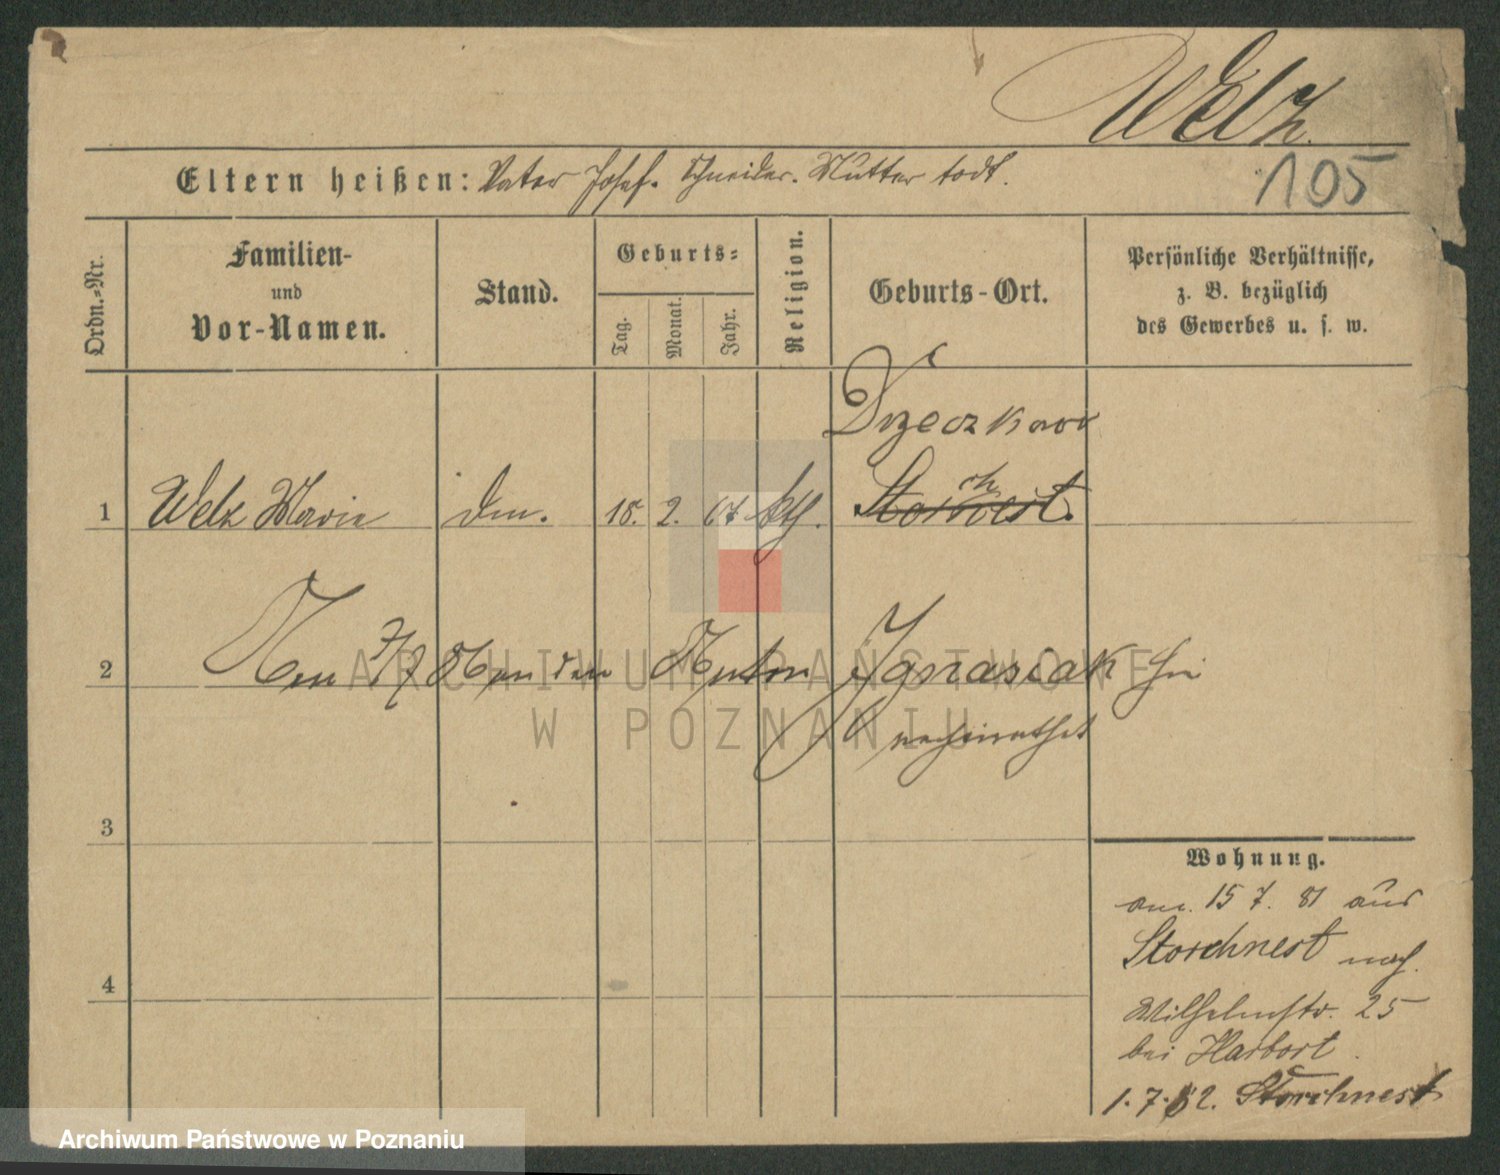 Welz.
105
Eltern heißen: Vater Josef. Schneider. Mutter todt.
Ordn.-Nr.
Familien-
und
Vor-Namen.
Stand.
Geburts-
Tag.
Monat.
Jahr.
Religion.
Geburts-Ort.
Persönliche Verhältnisse,
z. B. bezüglich
des Gewerbes u. s. w.
1 Welz Maria 18. 2. 67 kth.
Storchnest.
2 Anton Ignasiak
verheirathet
3
4
Wohnung.
am. 15 7. 81 aus
Storchnest nach
Wilhelmstr. 25
bei Harbort
1. 7. 82. Storchnest
ARCHIWUM PAŃSTWOWE
W POZNANIU
Archiwum Państwowe w Poznaniu